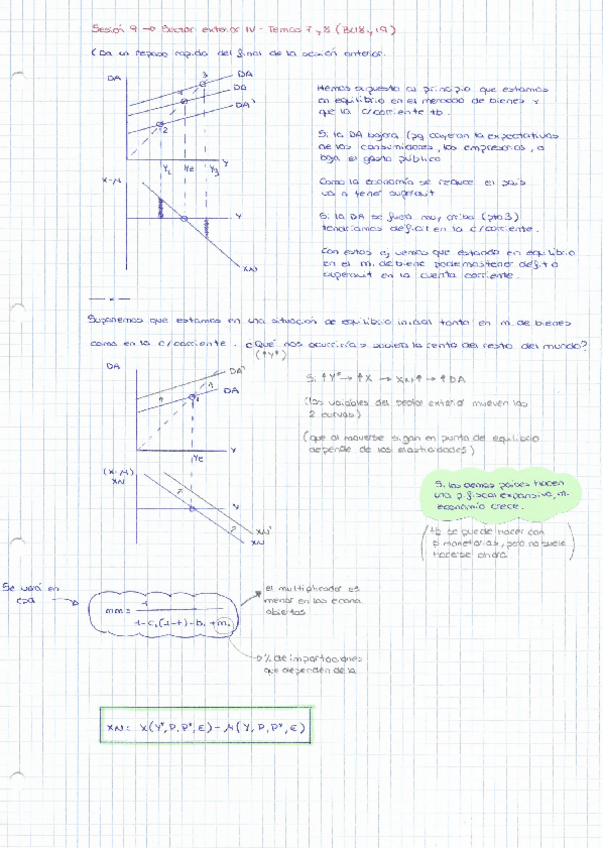 Sesión 9 → Sector exterior IV - Temas 7 y 8 (BL18 y 19)
(Da un repaso rapido del final de la sesión anterior.
DA
3
DA
1
DA
DA'
2
Y₂
Ye
Y₃
Y
X-M
Y
XN
Hemos supuesto al principio que estamos
en equilibrio en el mercado de bienes y
que la c/corriente tb.
Si la DA bajara (pq cayeran la expectativas
de los consumidores, los empresarios, o
baja el gasto público
Como la economía se reduce el país
va a tener superavit
Si la DA se fuera muy arriba (pto 3)
tendríamos deficit en la c/corriente.
Con estos ej vemos que estando en equilibrio
en el m. de biene podemos tener déficit o
superavit en la cuenta corriente.
Suponemos que estamos en una situación de equilibrio inicial tanto en m. de bienes
como en la c/corriente. ¿Qué nos ocurriría si subiera la renta del resto del mundo?
(↑Y*)
DA
DA'
DA
Y
Ye
(X-M)
XN
Y
XN'
XN
Si ↑Y* → ↑X → XN↑ → ↑DA
(las variables del sector exterior mueven las
2 curvas)
(que al moverse sigan en punto de equilibrio
depende de las elasticidades)
Si los demas países hacen
una p. fiscal expansiva, mi
economía crece.
(tb se puede hacer con
p. monetarias, pero no suele
hacerse ahora)
Se verá en
mm = 1
1-c₁(1-t)-b₁+m₁
el multiplicador es
menor en las econo
abiertas
% de importaciones
que dependen de la
XN = X(Y*, P, P*, E) - M(Y, P, P*, E)